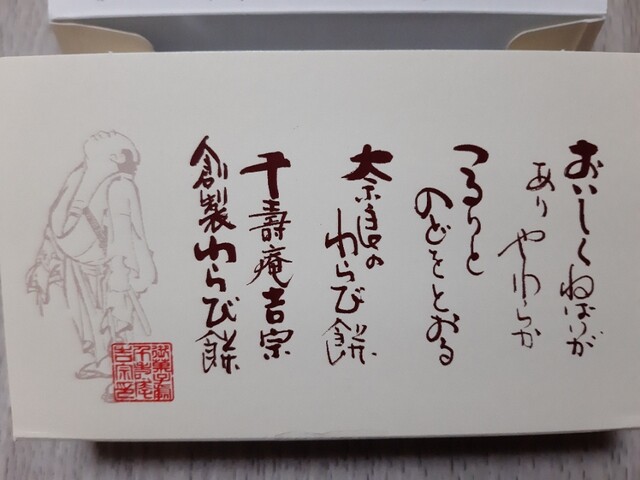 おいしくねばりが
あり やわらか
つるりと
のどをとおる
奈良の
わらび餅
千壽庵吉宗
創製わらび餅